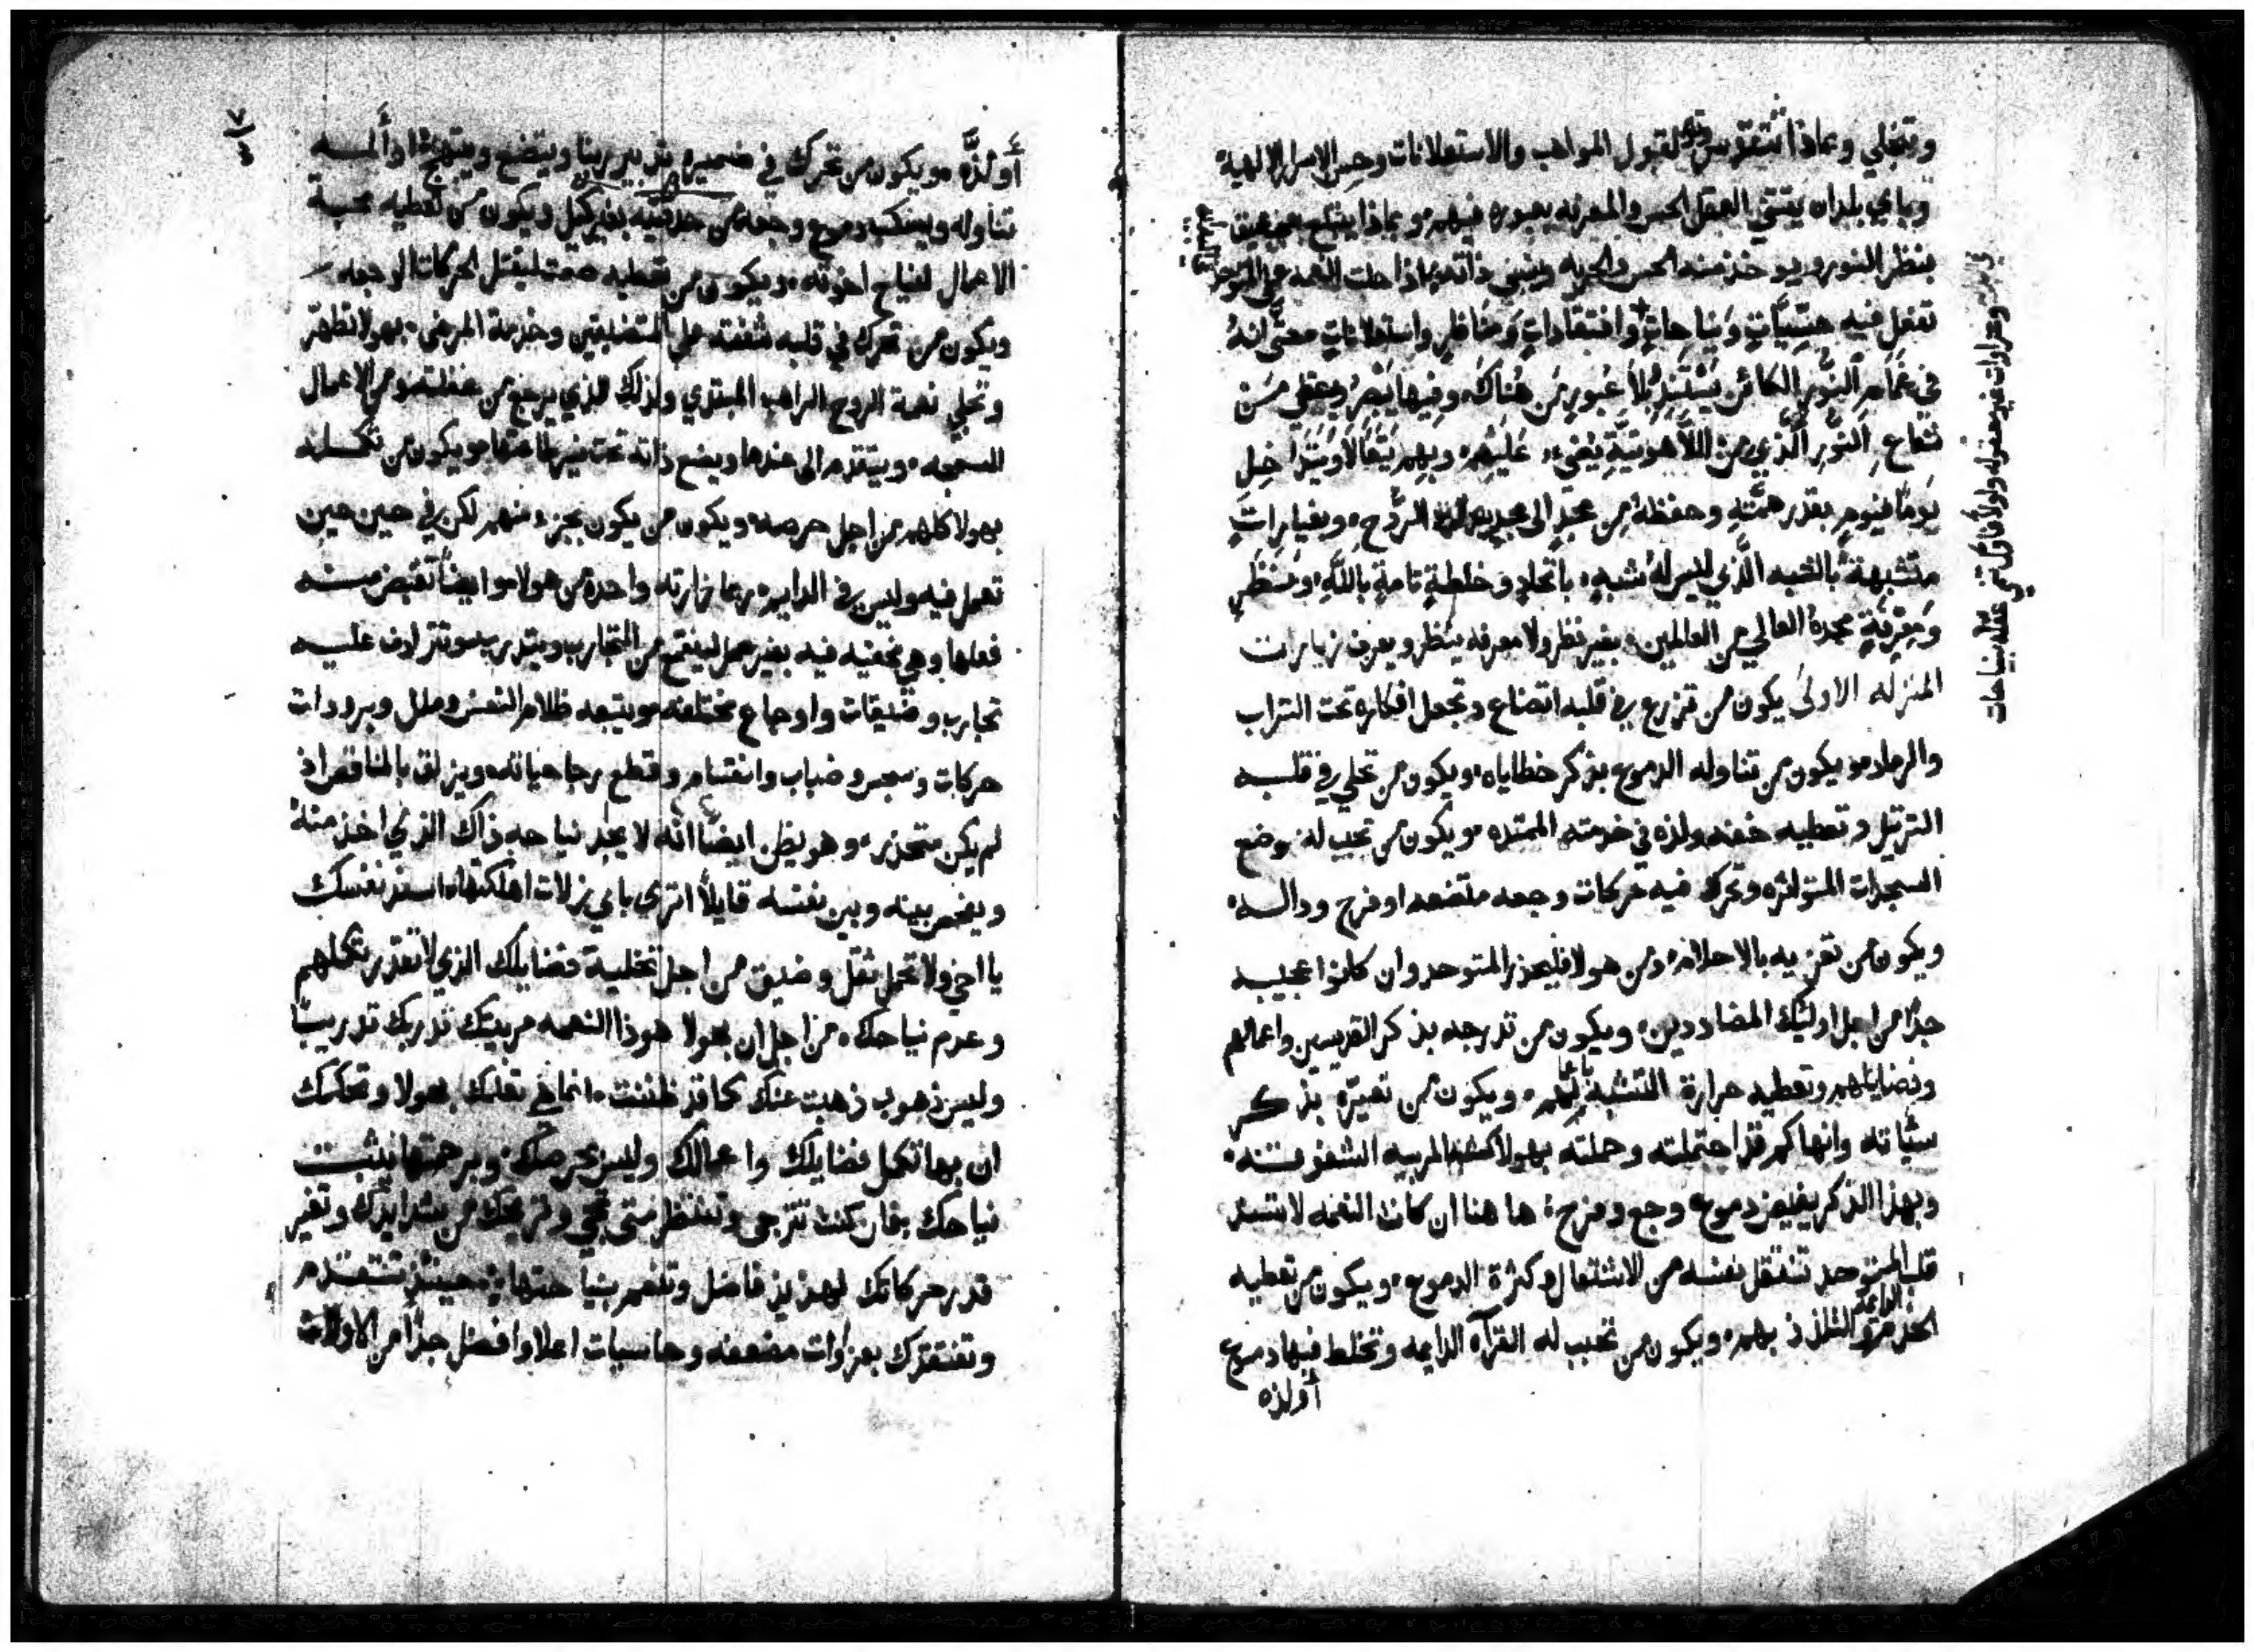 وتنجلي وبماذا تتقوس وتعد لقبول المواهب والاستعلانات وحس الاسرار الالهية
وباي بلدان يقتني العقل الحس والمعرفه بعبوره فيهم وبماذا يفلح
ينظر النور ويوخذ منه الحس والحريه وينسى ذاته بماذا حلت النعمه على المتوحد
تفعل فيه حسيات ونياحات وافتقادات ومناظر واستعلانات حتى انه
في غمام النور الكائن يستتر بلا عبور من هناك وفيها يبصر ويعطي من
شعاع النور الذي من اللاهوتية يضيء عليهم وبهم يتعالا ويتداخل
يوما فيوم بقدر همته وحفظه من مجد الى مجد الروح وبغيارات
متشبهة بالشبه الذي ليس له شبه باتحاد وخلطة تامة بالله ومنظر
ومعرفة مجده العالي من العالمين بغير نظر ولا معرفه ينظر ويعرف زيارات
المنزله الاولى يكون من تزرع في قلبه اتضاع وتجعل افكاره تحت التراب
والرماد ويكون من تناوله الدموع بذكر خطاياه ويكون من تحلي في قلبه
الترتيل وتعطيه خفه ولذه في خدمته الممتده ويكون من تحبب له وضع
السجدات المتواتره وتحرك فيه حركات وجعه متضعه او فرح ودالسه
ويكون من تعزيه بالاحلام ومن هولا فليحذر المتوحد وان كانوا عجيبه
جدا من اجل اوليك المضاددين ويكون من تدرجه بذكر القديسين واعمالهم
وفضايلهم وتعطيه حرارة التشبه بهم ويكون من تعيره بذكر
سياته وانها كم قد احتملته وحملته بهولا كمثل المربيه الشفوقه
وبهذا الذكر يفيض دموع وجع وفرح ها هنا ان كانت النعمه لا تسند
قلب المتوحد تنفقل نفسه من الاشتعال وكثرة الدموع ويكون من تعطيه
الخدمة الدايمة والتلذذ بهم ويكون من تحبب له القرآه الدايمه وتخلط فيها دموع
أو لذه
أو لذه ويكون من تحرك في ضميره تدبير ربنا ويتضع ويتهيئ اذ ألمه
تناوله ويسكب دموع وجعه من حدقتيه بغير كيل ويكون من تعطيه محبة
الاعمال لنياح اخوته ويكون من تعطيه صمت ليقتل الحركات الوجعه
ويكون من تحرك في قلبه شفقته على المتضايقين وخدمة المرضى بهولا تطهر
وتجلي نعمة الروح الراهب المبتدي ولذلك الذي يرجع من غفلته من الاعمال
السمجه ويتقدم الى عندها ويضع ذاته تحت نير طاعتها ويكون من تكمله
بهولا كلهم من اجل حرصه ويكون من يكون بجزء منهم لكن في حين حين
تعمل فيه وليس في الدايم ربما زارته واحده من هولا وايضا تقبض منه
فعلها وهي مخفيه فيه بغير عمل لينقح من التجارب ويتدرب وتترادف عليه
تجارب وضيقات واوجاع مختلفه ويتبعه ظلام النفس وملل وبرودات
حركات وسجس وضباب وانقسام وقطع رجا حياته ويزلق بالمناقص اذ
لم يكن متحذر وهو يظن ايضا انه لا يجد نياحه ذاك الذي اخذ منه
ويفحص بينه وبين نفسه قايلا اترى باي زلات اهلكتها اسند نفسك
يا اخي ولا تحمل ثقل وضيق من اجل تخلية فضايلك الذي لا تقدر تكملهم
وعدم نياحك من اجل ان بهولا هوذا النعمه مربيتك تدربك تدريبا
وليس ذهوب ذهبت عنك كما قد ظننت انما هي تعلمك بهولا وتحكمك
ان بها تكمل فضايلك واعمالك وليس بحرصك وبرحمتها يثبت
نياحك فان كنت تترجى وتنتظر متى تجي وتريحك من شدايدك وتغير
قدر حركاتك لهذيذ فاضل وتنعم بنياحتها حينيذ تتقدم
وتفتقدك بعزاوات مضعفه وحاسيات اعلا وافضل جدا من الاولات